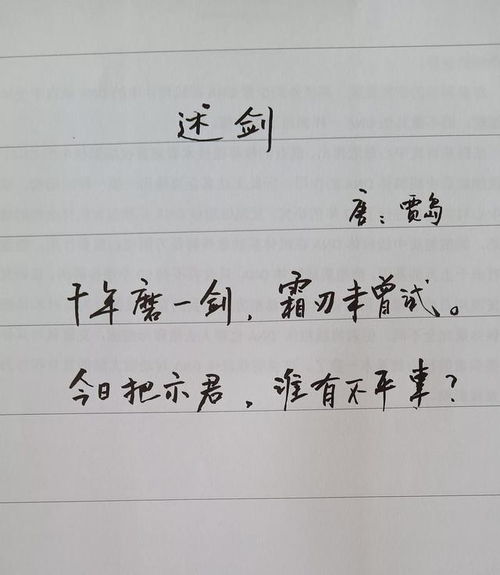 述剑
唐：贾岛
十年磨一剑，霜刃未曾试。
今日把示君，谁有不平事？